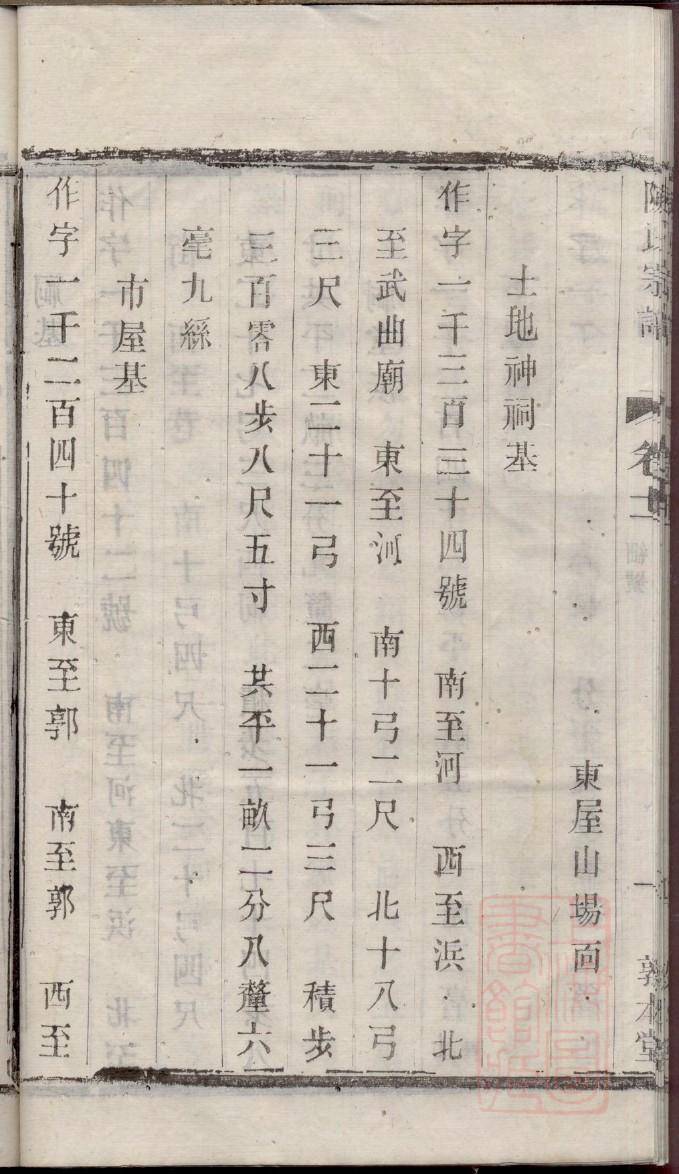 陳氏宗譜 卷十二 一 敦本堂
東屋山場面
土地神祠基
作字一千三百三十四號 南至河 西至浜 北
至武曲廟 東至河 南十弓二尺 北十八弓
三尺 東二十一弓 西二十一弓三尺 積步
三百零八步八尺五寸 共平一畝二分八釐六
毫九絲
市屋基
作字一千二百四十號 東至郭 南至郭 西至